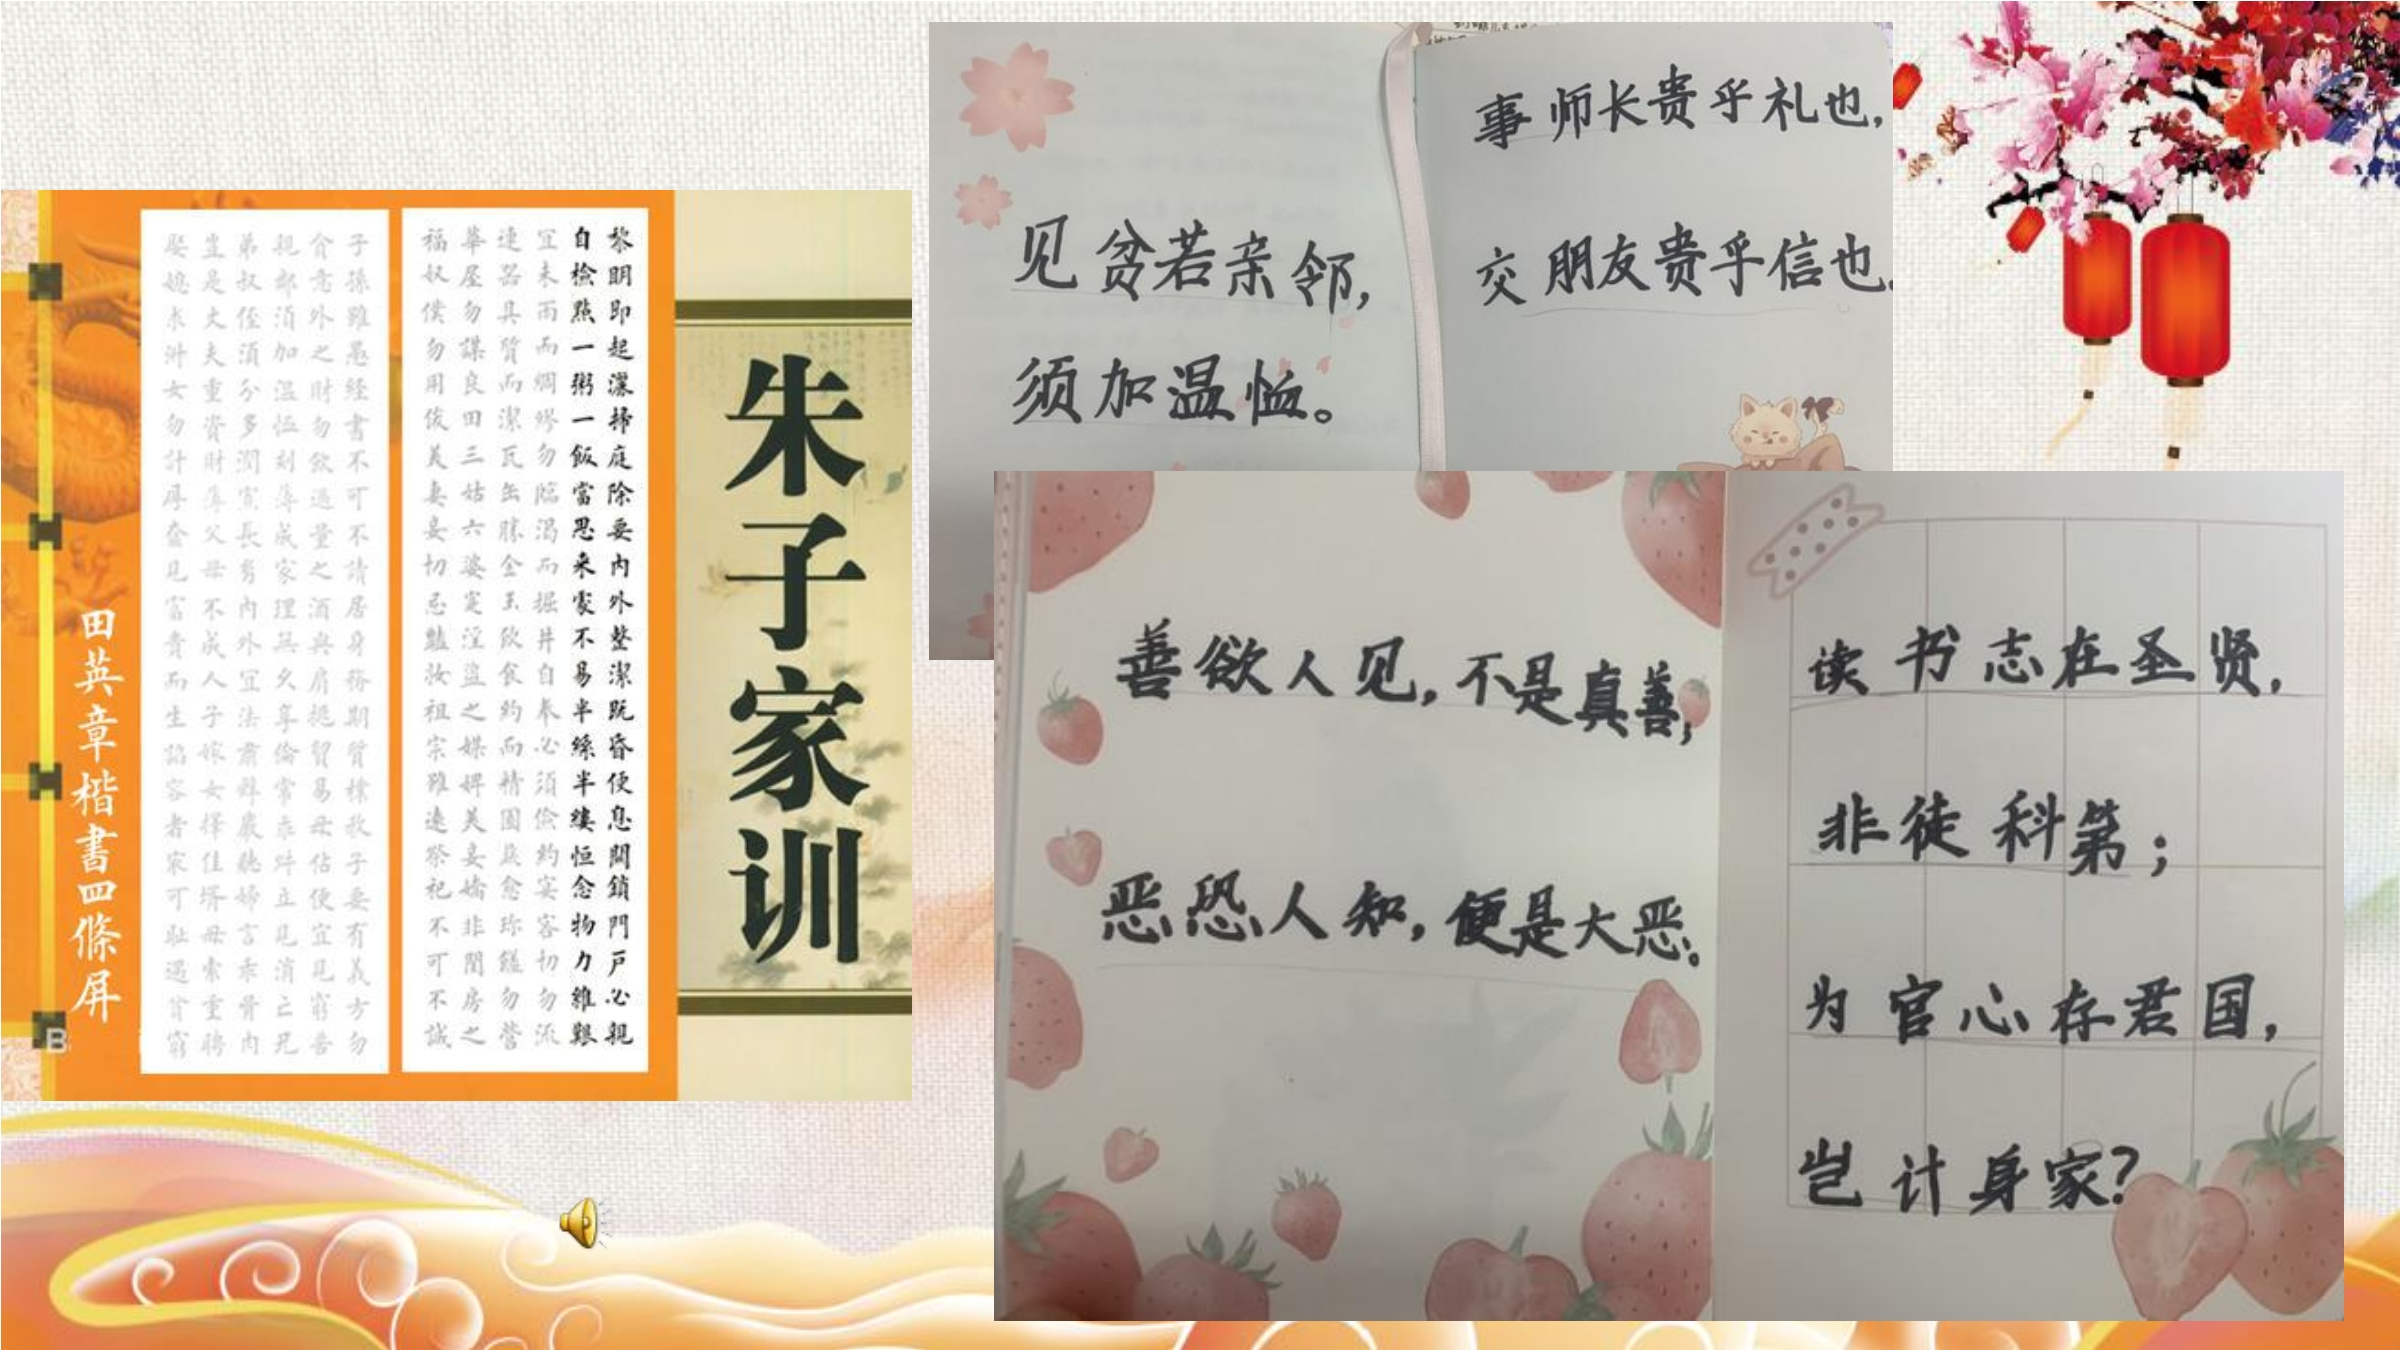 朱子家训
黎明即起灑掃庭除要内外整潔既昏便息關鎖門戸必親
自檢點一粥一飯當思来處不易半絲半縷恒念物力維艱
宜未雨而綢繆勿臨渴而掘井自奉必須儉約宴客切勿流
連器具質而潔瓦缶勝金玉飲食約而精園蔬愈珍饈勿營
華屋勿謀良田三姑六婆寔淫盜之媒婢美妾嬌非閨房之
福奴僕勿用俊美妻妾切忌豔妝祖宗雖遠祭祀不可不誠
子孫雖愚経書不可不請居身務期質樸教子要有義方勿
貪意外之財勿飲過量之酒與肩挑貿易毋佔便宜見窮苦
親鄰須加温恤刻薄成家理無久享倫常乖舛立見消亡兄
弟叔侄須分多潤寡長幼内外宜法肅辭嚴聽婦言乖骨内
豈是丈夫重資財薄父母不成人子嫁女擇佳壻毋索重聘
娶媳求淑女勿計厚奩見富貴而生諂容者最可恥遇貧窮
田英章楷書四條屏
B
见贫若亲邻,
须加温恤。
事师长贵乎礼也,
交朋友贵乎信也.
善欲人见,不是真善;
恶恐人知,便是大恶。
读书志在圣贤,
非徒科第;
为官心存君国,
岂计身家?